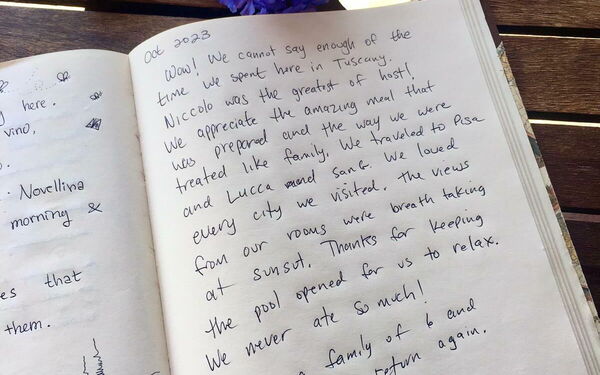 here.
vino,
Novellina
morning &
es that
them.
Oct 2023
Wow! We cannot say enough of the
time we spent here in Tuscany.
Niccolo was the greatest of host!
We appreciate the amazing meal that
was prepared and the way we were
treated like family. We traveled to Pisa
and Lucca and sang. We loved
every city we visited. The views
from our rooms were breath taking
at sunsut. Thanks for keeping
the pool opened for us to relax.
We never ate so much!
family of 6 and
return again.